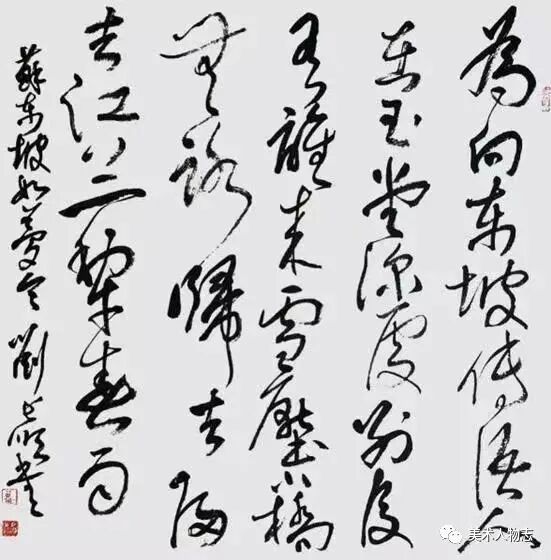 為向東坡傳語人
在玉堂深處別後
有誰來雪壓小橋
無路歸去歸
去江上一犁春雨
蘇東坡如夢令 劉 順書
美术人物志